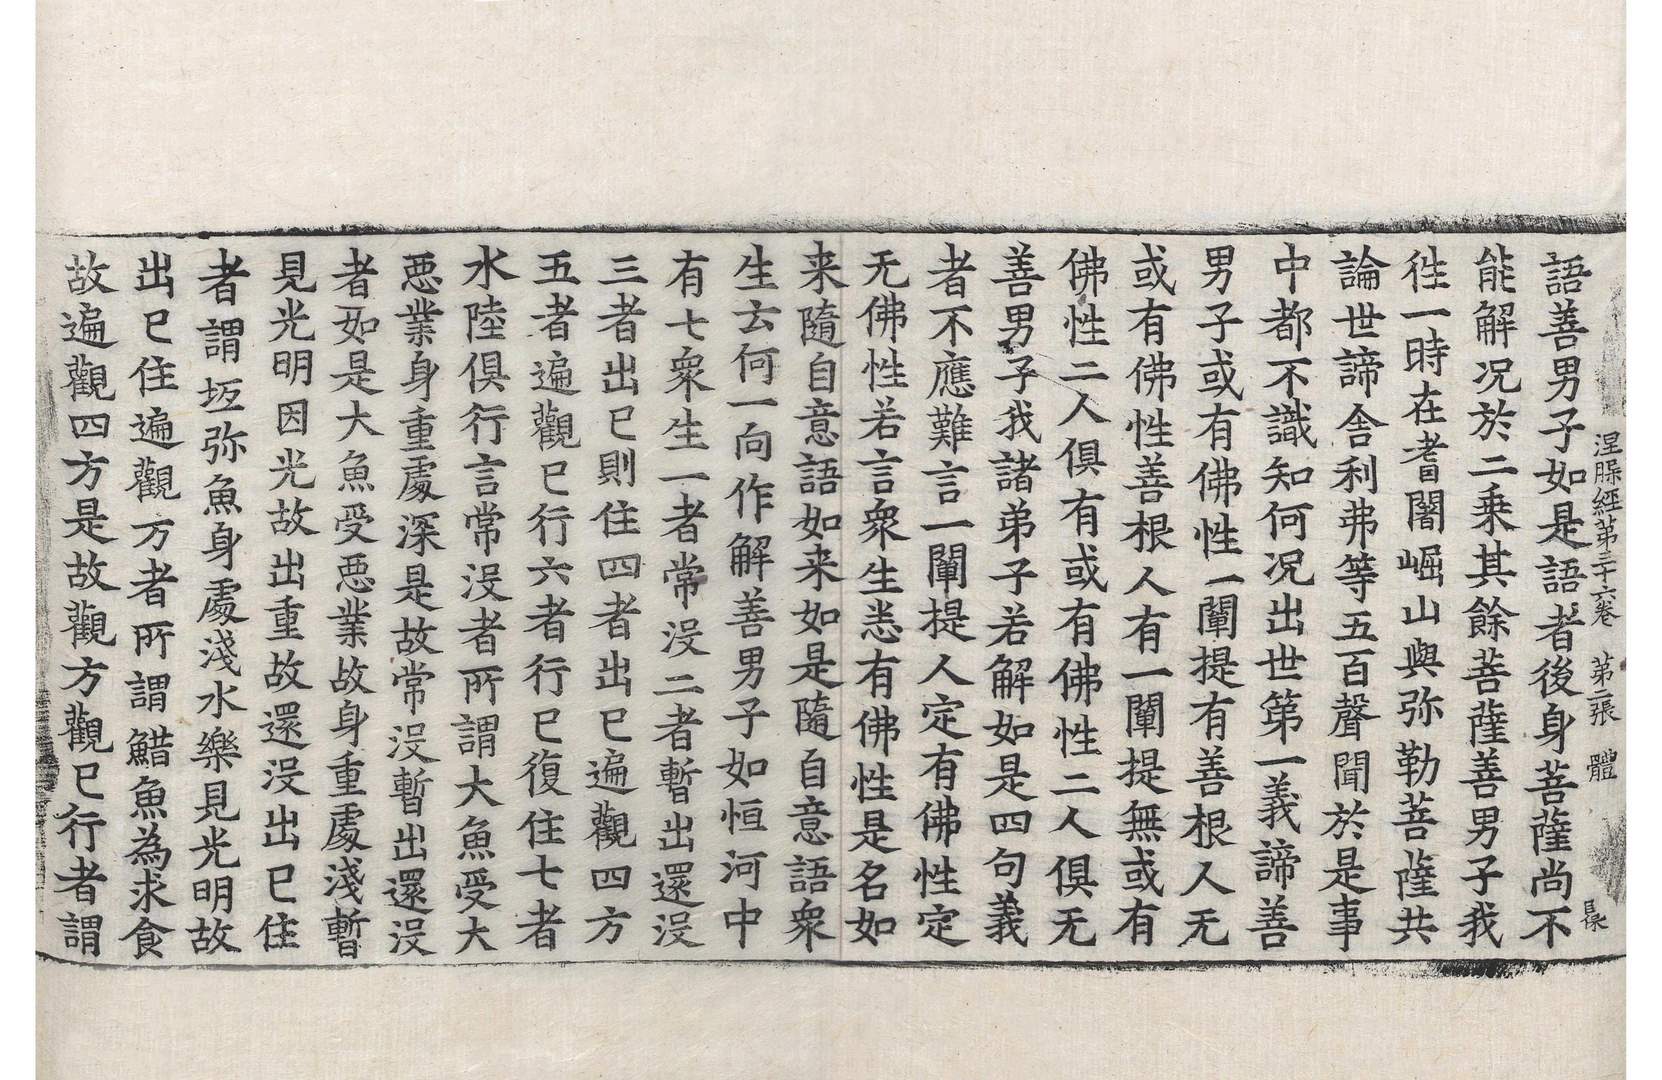 涅脲經第三十六卷　第二張　體
語善男子如是語者後身菩薩尚不
能解况於二乘其餘菩薩善男子我
徃一時在耆闍崛山與弥勒菩薩共
論世諦舎利弗等五百聲聞於是事
中都不識知何况出世第一義諦善
男子或有佛性一闡提有善根人无
或有佛性善根人有一闡提無或有
佛性二人俱有或有佛性二人俱无
善男子我諸弟子若解如是四句義
者不應難言一闡提人定有佛性定
无佛性若言衆生悉有佛性是名如
来隨自意語如来如是隨自意語衆
生云何一向作解善男子如恒河中
有七衆生一者常沒二者暫出還沒
三者出已則住四者出已遍觀四方
五者遍觀已行六者行已復住七者
水陸俱行言常沒者所謂大魚受大
惡業身重處深是故常沒暫出還沒
者如是大魚受惡業故身重處淺暫
見光明因光故出重故還沒出已住
者謂坘弥魚身處淺水樂見光明故
出已住遍觀方者所謂鯌魚為求食
故遍觀四方是故觀方觀已行者謂